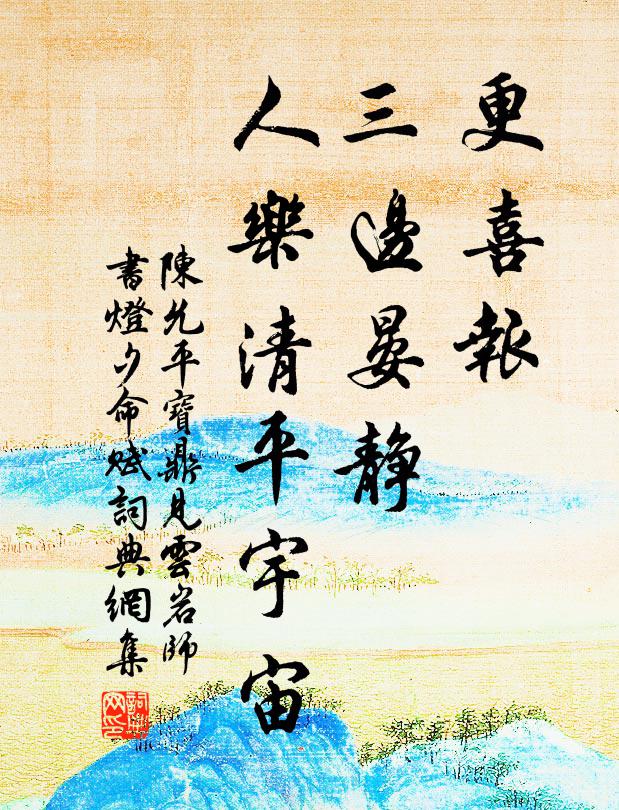 更喜報
三邊晏静
人樂清平宇宙
陳允平寶鼎見雲岩師
書燈夕命賦詞典網集